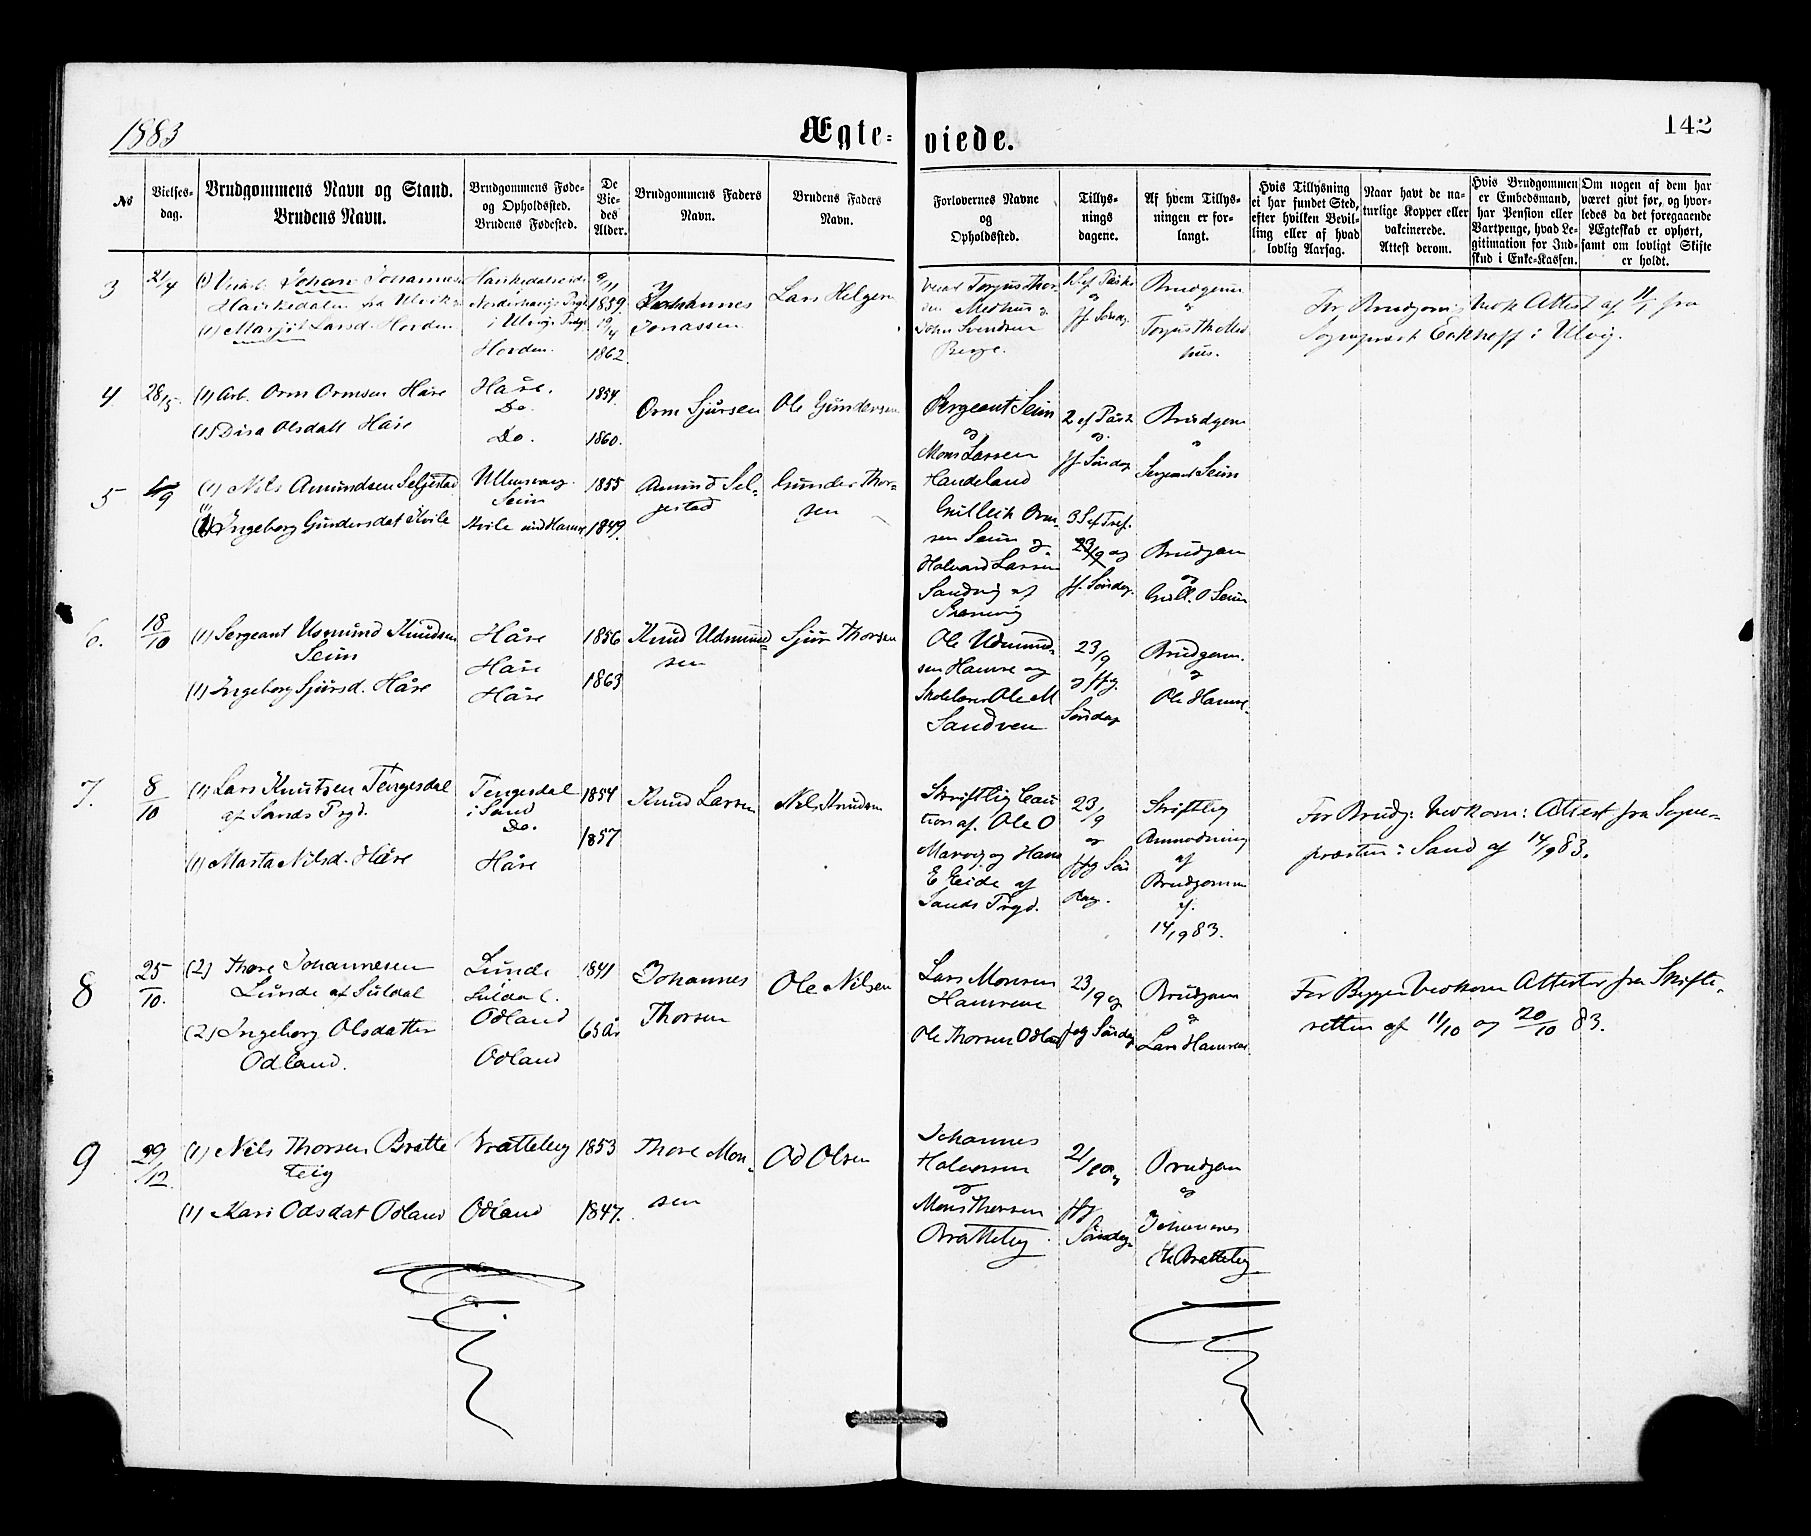 1883
Ægte-
viede.
142
No
Vielses-
dag.
Brudgommens Navn og Stand.
Brudens Navn.
Brudgommens Føde-
og Opholdssted.
Brudens Fødested.
De
Vie-
des
Alder.
Brudgommens Faders
Navn.
Brudens Faders
Navn.
Forlovernes Navne
og
Opholdssted.
Tillys-
nings
dagene.
Af hvem Tillys-
ningen er for-
langt.
Hvis Tillysning
ei har fundet Sted,
efter hvilken Bevil-
ling eller af hvad
lovlig Aarsag.
Naar havt de na-
turlige Kopper eller
vakcinerede.
Attest derom.
Hvis Brudgommen
er Embedsmand,
har Pension eller
Vartpenge, hvad Le-
gitimation for Ind-
skud i Enke-Kassen.
Om nogen af dem har
været givt før, og hvor-
ledes da det foregaaende
Ægteskab er ophørt,
samt om lovligt Skifte
er holdt.
3
21/4
Johan Johannes
(1) Marjit Larsd. Horden
i Ulvigs Prgd.
Horden.
9/11
1839.
19/4
1862
Johannes
Jonassen
Lars Helgesen
Torgus Thor
sen Medhus og
John Svendsen
Berge.
2 S. ef Paaske
og
ff. Søndag
Brudgom
og
Torgus Th Med
hus.
For Brudgom: Vedk. Attest af 11/1 fra
Sogneprest Eckhoff i Ulvig.
4
28/5
(1) Arb. Orm Ormsen Håre
(1) Disa Olsdatt Håre
Håre.
Do.
Do.
1854
1860.
Orm Sjursen
Ole Gundersen
Sergeant Seim
og
Mons Larsen
Handeland
2 ef Påsk
og
ff. Søndag
Brudgom
og
Sergeant Seim
5
(1) Nils Amundsen Seljestad
(1) Ingeborg Gundersdat Hvile
Ullensvang
Seim
Hvile under Hamre
1855
1849.
Amund Sel-
jestad
Gunder Thor-
sen
Gulleik Orm-
sen Seim og
Halvard Larsen
Sandvig af
3 S ef Tref.
23/9 og
ff. Søndag.
Brudgom
og
Gull. O Seim
6.
18/10
(1) Sergeant Usmund Knudsen
Seim
(1) Ingeborg Sjursd. Håre
Håre
Håre
Håre
1856
1863
Knud Udmund-
sen
Sjur Thorsen
Ole Udmund-
sen Hamre og
Skolelærer Ole M
Sandven
23/9
og ffg.
Søndag
Brudgom.
og
Ole Hamre.
7.
8/10
(1) Lars Knutsen Tengesdal
af Sands Prgd.
(1) Marta Nilsd. Håre
Tengesdal
i Sand
Do.
Håre
1854
1857
Knud Larsen
Nils Knudsen
Skriftlig Cau
tion af. Ole O
Marvig og Hans
E Eide af
Sands Prgd.
23/9
og
ffg Søn
dag.
Skriftlig
Anmodning
af
Brudgommen
af
14/9 83.
For Brudg: Vedkom: Attest fra Sogne-
præsten i Sand af 14/9 83.
8
25/10.
(2) Thore Johannesen
Lunde af Suldal
(2) Ingeborg Olsdatter
Odland.
Lunde
Suldal.
Odland
Odland
1841
65 år
Johannes
Thorsen
Ole Nilsen
Lars Monsen
Hamrene
Ole Thorsen Odland
23/9 og
fg Søndag
Brudgom
og
Lars Hamrene
For Begge Vedkom Attester fra Skifte-
retten af 11/10 og 20/10 83.
9
29/12.
(1) Nils Thorsen Bratte
teig
(1) Kari Odsdat Odland
Bratteteig
Odland
1853
1847.
Thore Mon-
sen
Od Olsen
Johannes
Halvorsen
og
Mons Thorsen
Bratteteig
21/10 og
ffg
Søndag
Brudgom
og
Johannes
H Bratteteig